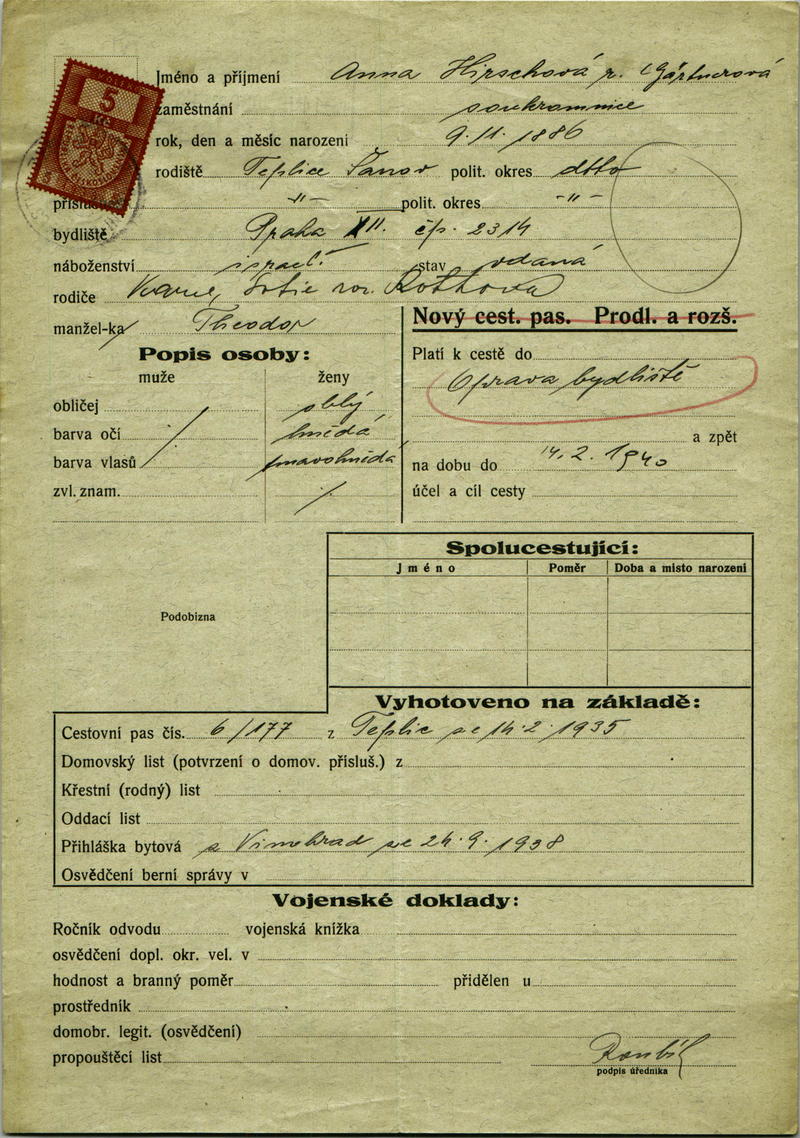 5
Kčs
Jméno a příjmení Anna Hirschová r. Gärtnerová
zaměstnání soukromnice
rok, den a měsíc narození 9. 11. 1886
rodiště Teplice Šanov polit. okres dtto
příslušnost -"- polit. okres -"-
bydliště Praha XII. čp. 2314
náboženství israel. stav vdaná
rodiče Karel, Sofie roz. Rothová
manžel-ka Theodor
Nový cest. pas. Prodl. a rozš.
Popis osoby:
muže ženy
Platí k cestě do
Oprava bydliště
obličej oblý
barva očí hnědá
a zpět
barva vlasů tmavohnědá
na dobu do 14. 2. 1940
zvl. znam.
účel a cíl cesty
Spolucestující:
Jméno Poměr Doba a místo narození
Podobizna
Vyhotoveno na základě:
Cestovní pas čís. 6/177 z Teplic ze 14. 2. 1935
Domovský list (potvrzení o domov. přísluš.) z
Křestní (rodný) list
Oddací list
Přihláška bytová z Vinohrad ze 24. 9. 1938
Osvědčení berní správy v
Vojenské doklady:
Ročník odvodu vojenská knížka
osvědčení dopl. okr. vel. v
hodnost a branný poměr přidělen u
prostředník
domobr. legit. (osvědčení)
propouštěcí list
podpis úředníka